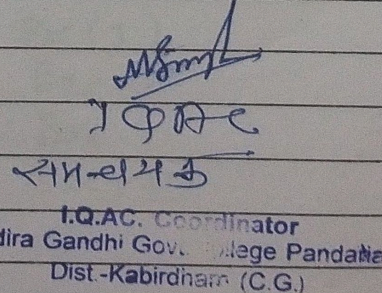 IQAC
समन्वयक
I.Q.AC. Coordinator
dira Gandhi Gov. llege Pandaria
Dist.-Kabirdham (C.G.)